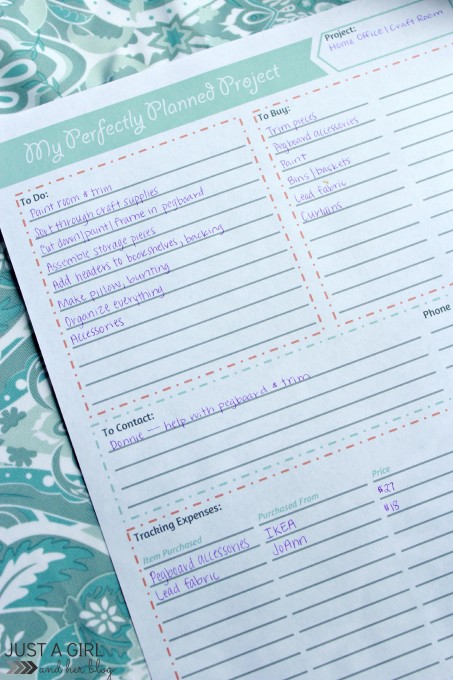 My Perfectly Planned Project
Project:
Home Office | Craft Room
To Do:
Paint room & trim
Sort through craft supplies
Cut down/paint/frame in pegboard
Assemble storage pieces
Add headers to bookshelves, backing
Make pillow, bunting
Organize everything
Accessories
To Buy:
Trim pieces
Pegboard accessories
Paint
Bins/baskets
Lead fabric
Curtains
To Contact:
Phone
Donnie — help with pegboard & trim
Tracking Expenses:
Item Purchased Purchased From Price
Pegboard accessories IKEA $27
Lead fabric JoAnn $18
JUST A GIRL
and her blog